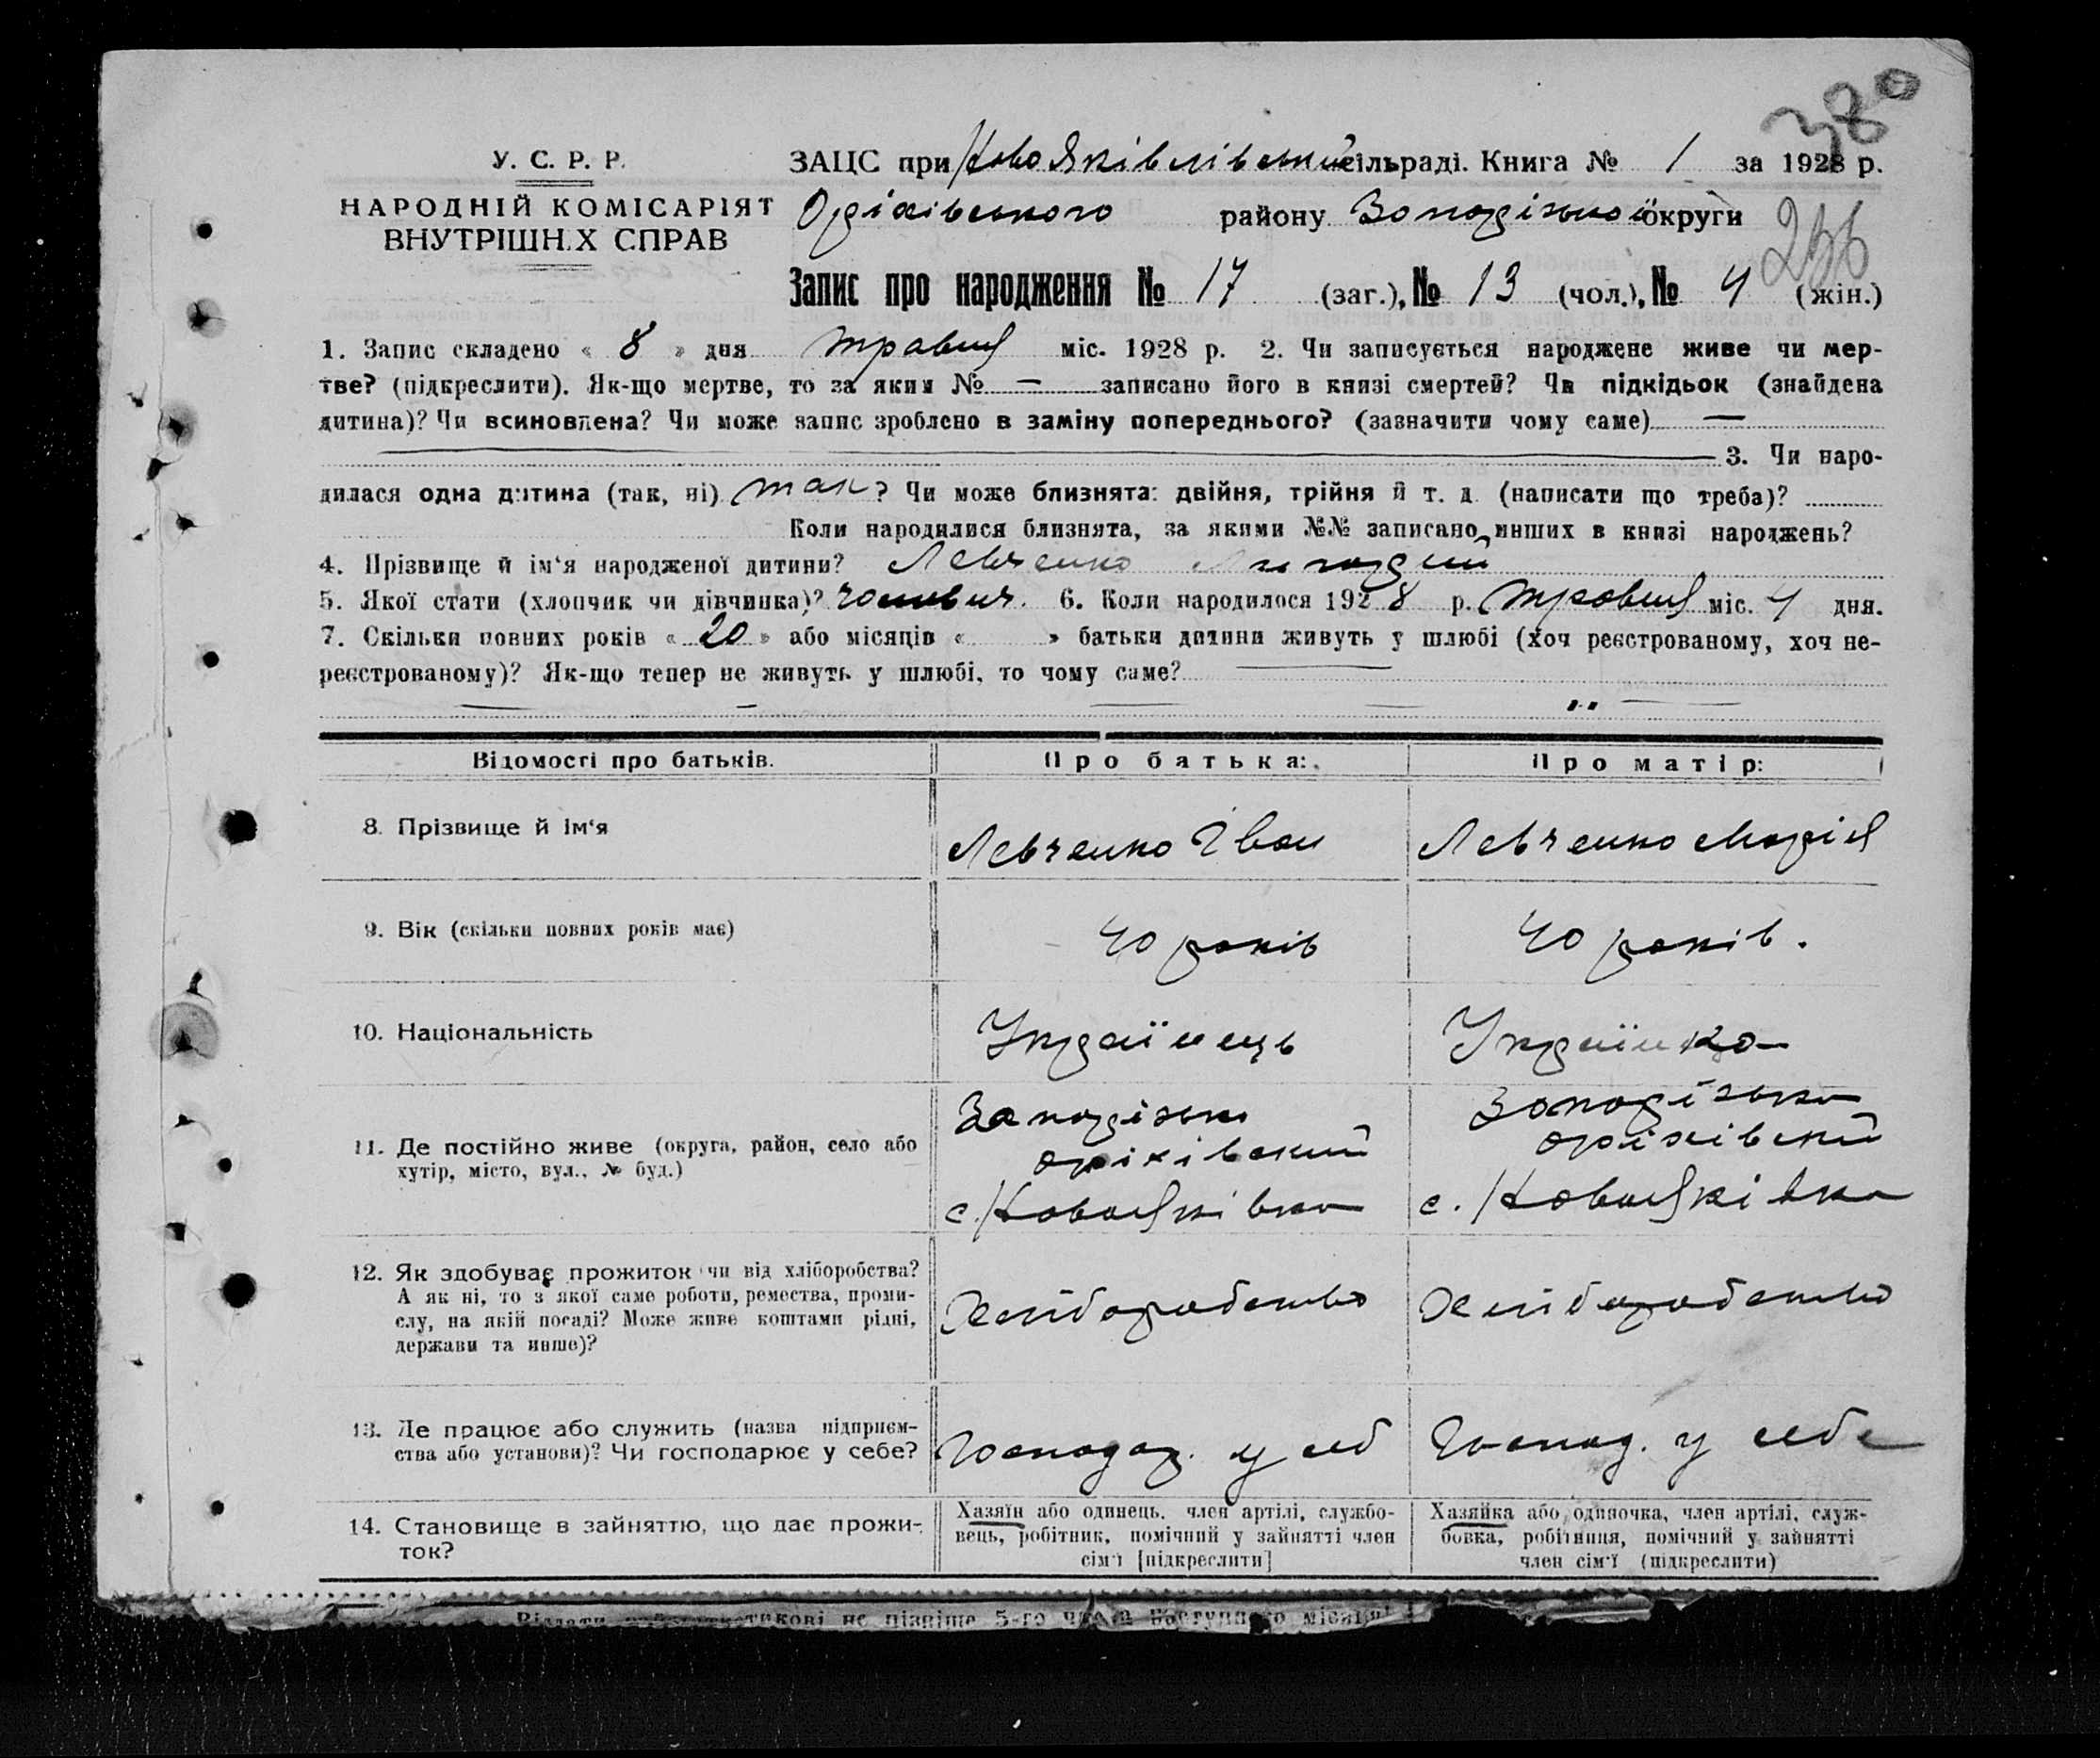 380
У. С. Р. Р.
НАРОДНІЙ КОМІСАРІЯТ
ВНУТРІШНІХ СПРАВ
ЗАЦС при Ново Яківлівській сільраді. Книга № 1 за 1928 р.
Оріхівського району Запорізької округи
Запис про народження № 17 (заг.), № 13 (чол.), № 4 (жін.)
1. Запис складено « 8 » дня травня міс. 1928 р. 2. Чи записується народжене живе чи мер-
тве? (підкреслити). Як-що мертве, то за яким № — записано його в книзі смертей? Чи підкідьок (знайдена
дитина)? Чи всиновлена? Чи може запис зроблено в заміну попереднього? (зазначити чому саме) —
3. Чи наро-
дилася одна дитина (так, ні) так? Чи може близнята: двійня, трійня й т. д. (написати що треба)?
Коли народилися близнята, за якими №№ записано инших в книзі народжень?
4. Прізвище й ім'я народженої дитини? Левченко
5. Якої стати (хлопчик чи дівчинка)? 6. Коли народилося 1928 р. травня міс. 4 дня.
7. Скільки повних років « 20 » або місяців « » батьки дитини живуть у шлюбі (хоч реєстрованому, хоч не-
реєстрованому)? Як-що тепер не живуть у шлюбі, то чому саме?
Відомості про батьків. Про батька: Про матір:
8. Прізвище й ім'я Левченко Іван Левченко Марія
9. Вік (скільки повних років має) 40 років 40 років.
10. Національність Українець Українка
11. Де постійно живе (округа, район, село або
хутір, місто, вул., № буд.)
Запорізька
оріхівський
с. Новояківка
Запорізька
оріхівський
с. Новояківка
12. Як здобуває прожиток чи від хліборобства?
А як ні, то з якої саме роботи, ремества, проми-
слу, на якій посаді? Може живе коштами рідні,
держави та инше)?
Хліборобство Хліборобство
13. Де працює або служить (назва підприєм-
ства або установи)? Чи господарює у себе?
Господар. у себ Господ. у себе
14. Становище в зайняттю, що дає прожи-
ток?
Хазяїн або одинець, член артілі, службо-
вець, робітник, помічний у зайнятті член
сім'ї [підкреслити]
Хазяйка або одиночка, член артілі, служ-
бовка, робітниця, помічний у зайнятті
член сім'ї (підкреслити)
не пізніше 5-го числа наступного місяця!